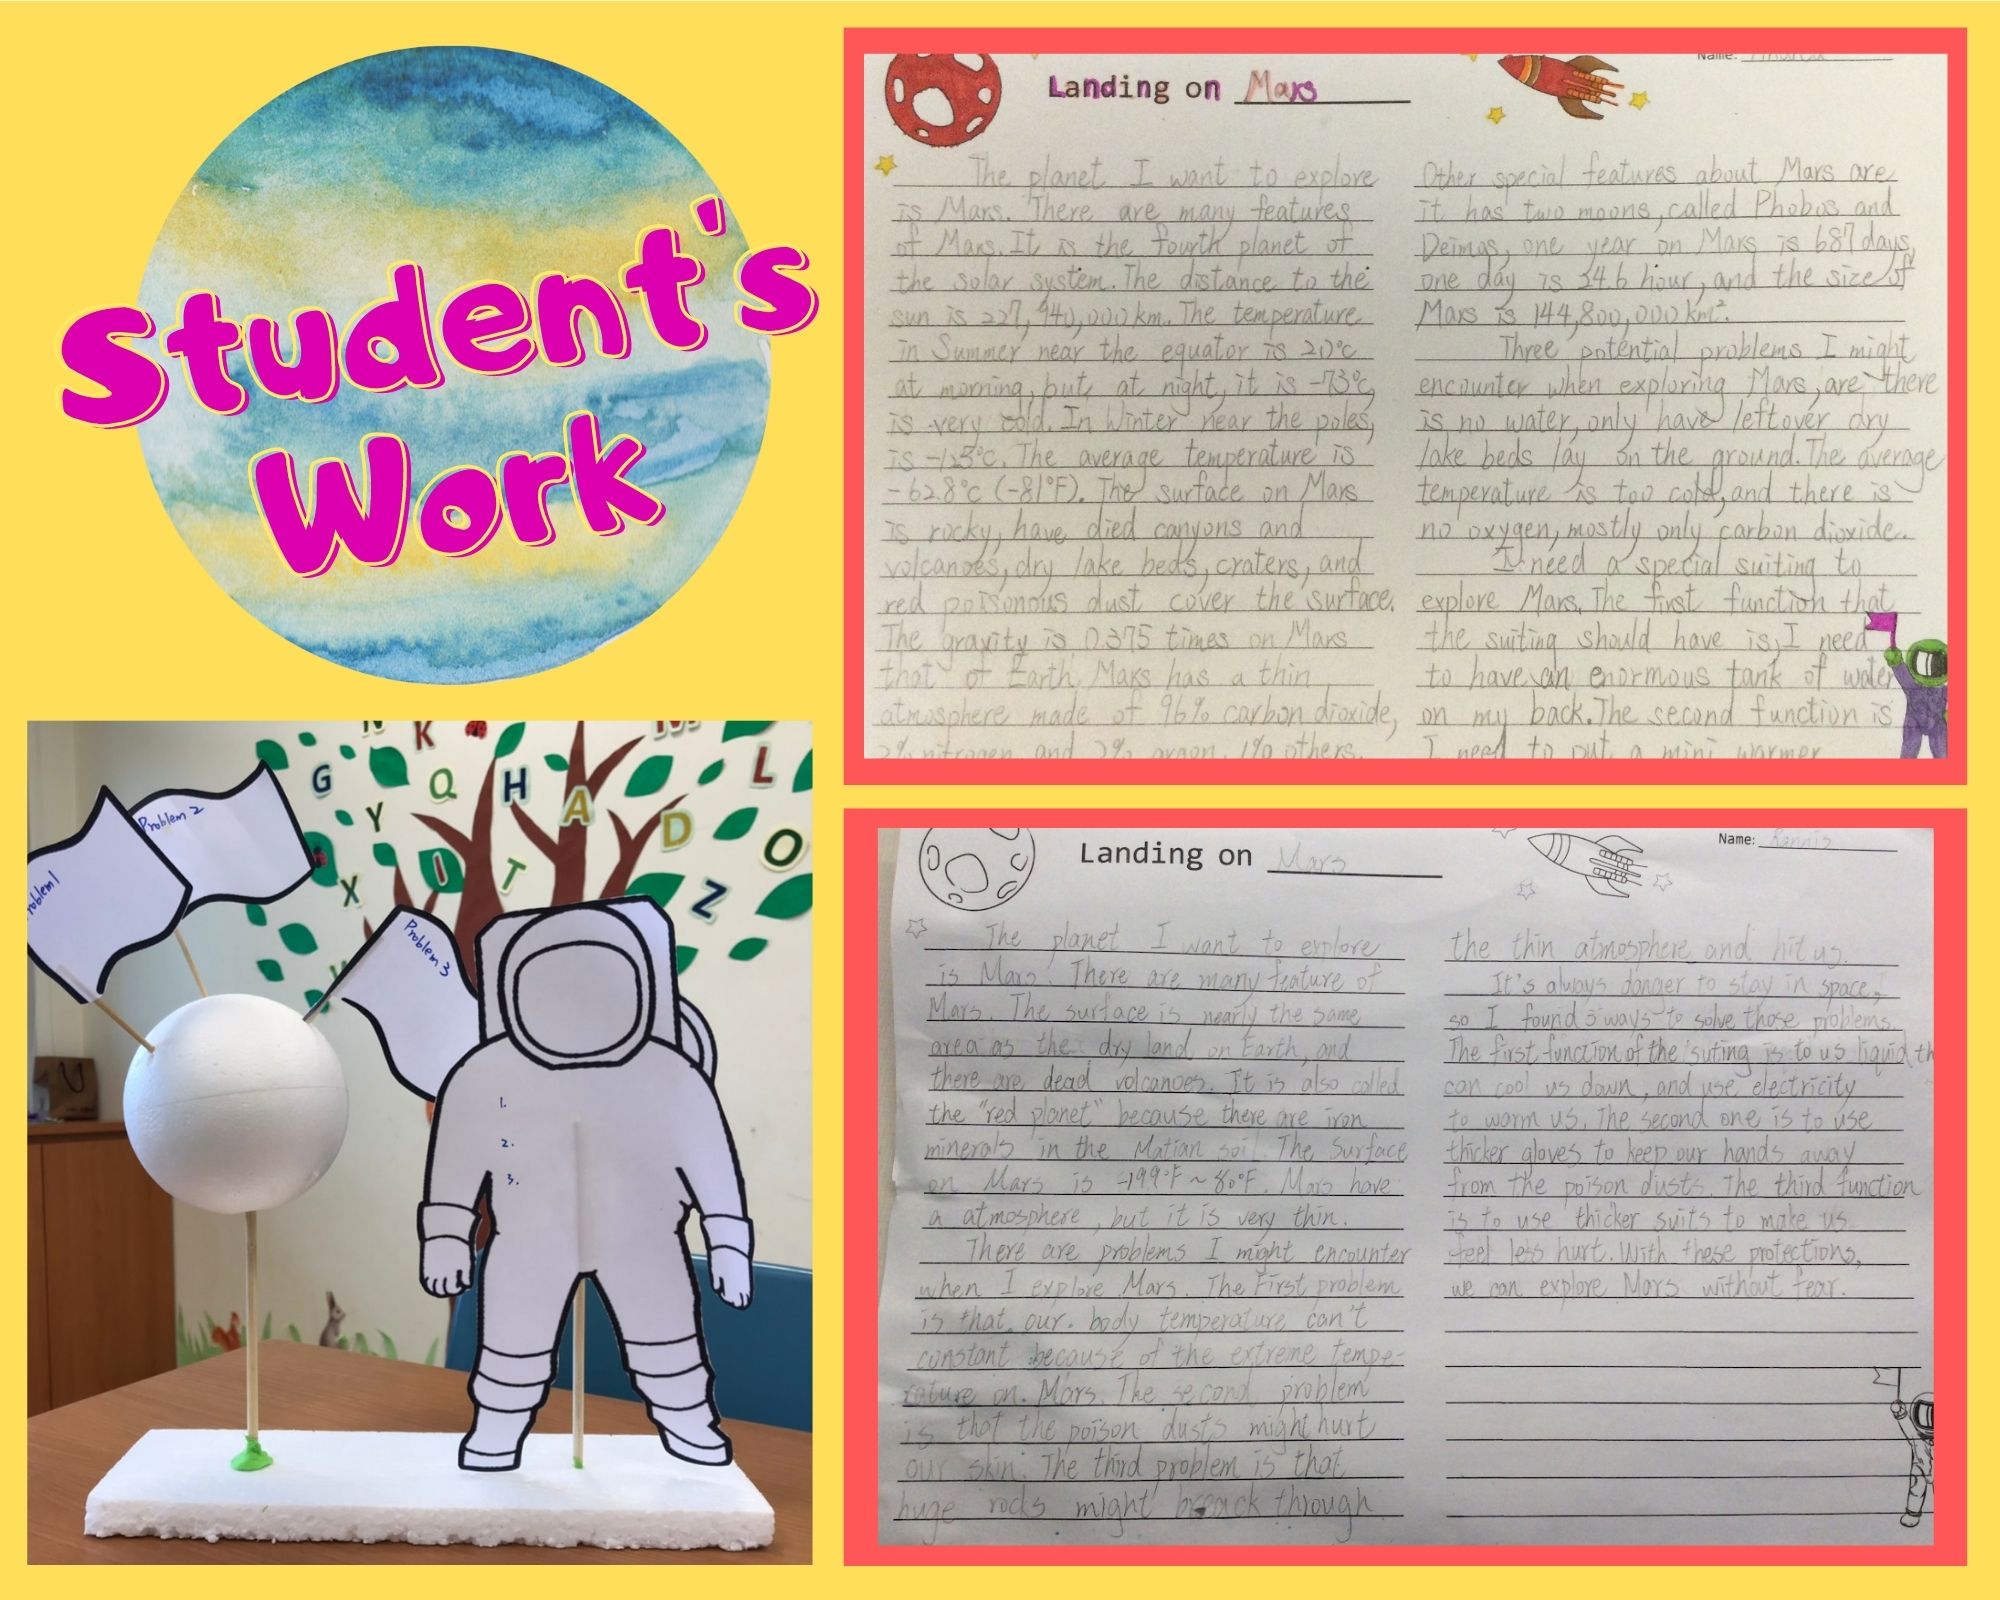 Student's
Work
Landing on Mars
Name:
The planet I want to explore
is Mars. There are many features
of Mars. It is the fourth planet of
the solar system. The distance to the
sun is 227,940,000 km. The temperature
in Summer near the equator is 20°c
at morning, but at night, it is -73°c,
is very cold. In Winter near the poles,
is -125°c. The average temperature is
-62.8°c (-81°F). The surface on Mars
is rocky, have died canyons and
volcanoes, dry lake beds, craters, and
red poisonous dust cover the surface.
The gravity is 0.375 times on Mars
that of Earth. Mars has a thin
atmosphere made of 96% carbon dioxide,
2% nitrogen and 2% argon, 1% others.
Other special features about Mars are
it has two moons, called Phobos and
Deimos, one year on Mars is 687 days,
one day is 24.6 hour, and the size of
Mars is 144,800,000 km².
Three potential problems I might
encounter when exploring Mars, are there
is no water, only have leftover dry
lake beds lay on the ground. The average
temperature is too cold, and there is
no oxygen, mostly only carbon dioxide.
I need a special suiting to
explore Mars. The first function that
the suiting should have is, I need
to have an enormous tank of water
on my back. The second function is
I need to put a mini warmer
Problem 1
Problem 2
Problem 3
N K M
G Q H A L
Y D O
X I T Z
1.
2.
3.
Landing on Mars
Name: Rennis
The planet I want to explore
is Mars. There are many feature of
Mars. The surface is nearly the same
area as the dry land on Earth, and
there are dead volcanoes. It is also called
the "red planet" because there are iron
minerals in the Matian soil. The Surface
on Mars is -199°F ~ 80°F. Mars have
a atmosphere, but it is very thin.
There are problems I might encounter
when I explore Mars. The First problem
is that our body temperature can't
constant because of the extreme tempe-
rature on Mars. The second problem
is that the poison dusts might hurt
our skin. The third problem is that
huge rocks might through
the thin atmosphere and hit us.
It's always danger to stay in space,
so I found 3 ways to solve those problems.
The first function of the suting is to us liquid th
can cool us down, and use electricity
to warm us. The second one is to use
thicker gloves to keep our hands away
from the poison dusts. The third function
is to use thicker suits to make us
feel less hurt. With these protections,
we can explore Mars without fear.